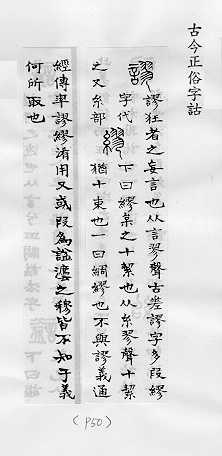 古今正俗字詁
謬 謬狂者之妄言也从言翏聲古差謬字多叚繆
字代
之又糸部
繆 下曰繆枲之十絜也从糸翏聲十絜
猶十束也一曰綢繆也不與謬義通
經傳率謬繆淆用又或叚為謚灋之穆皆不知于義
何所取也
(P50)